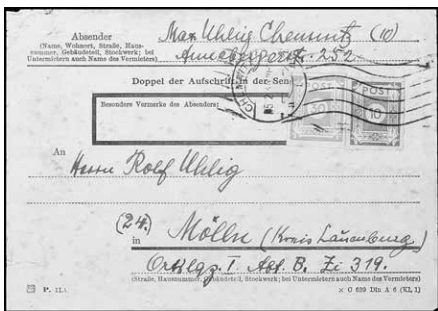 Absender
(Name, Wohnort, Straße, Haus-
nummer, Gebäudeteil, Stockwerk; bei
Untermietern auch Name des Vermieters)
Max Uhlig Chemnitz (10)
252
Doppel der Aufschrift in der Sen
POST
50
POST
10
Besondere Vermerke des Absenders:
An
Herrn Rolf Uhlig
(24.)
in Mölln (Kreis Lauenburg)
Ortslgz. I Abt. B. Zi 319.
(Straße, Hausnummer, Gebäudeteil, Stockwerk; bei Untermietern auch Name des Vermieters)
P.
× C 639 Din A 6 (Kl. I)